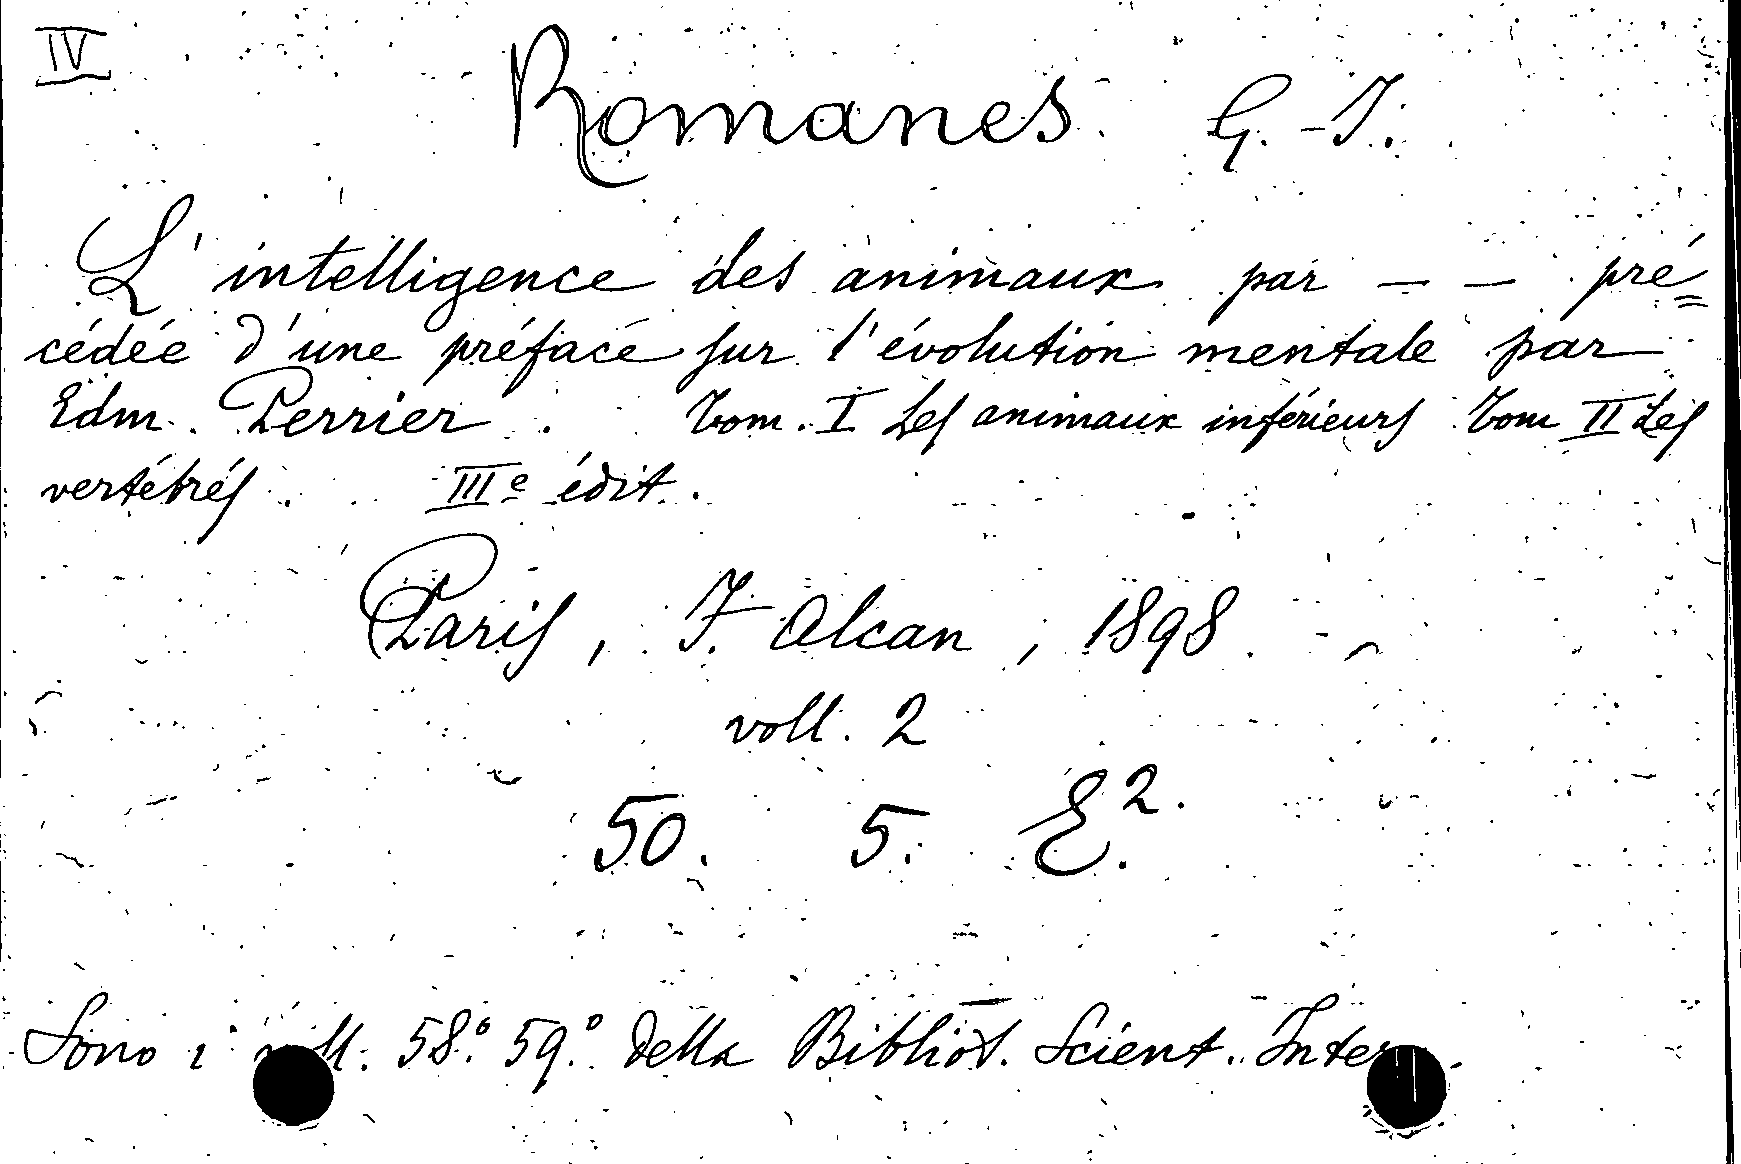 IV
Romanes G.-J.
L'intelligence des animaux par — — pré=
cédée d'une préface sur l'évolution mentale par
Edm. Perrier. Tom. I Les animaux inférieurs Tom II Les
vertébrés. IIIe édit.
Paris, F. Alcan, 1898.
voll. 2
50. 5. E2.
Sono i voll. 58.° 59.° della Bibliot. Scient. Inter